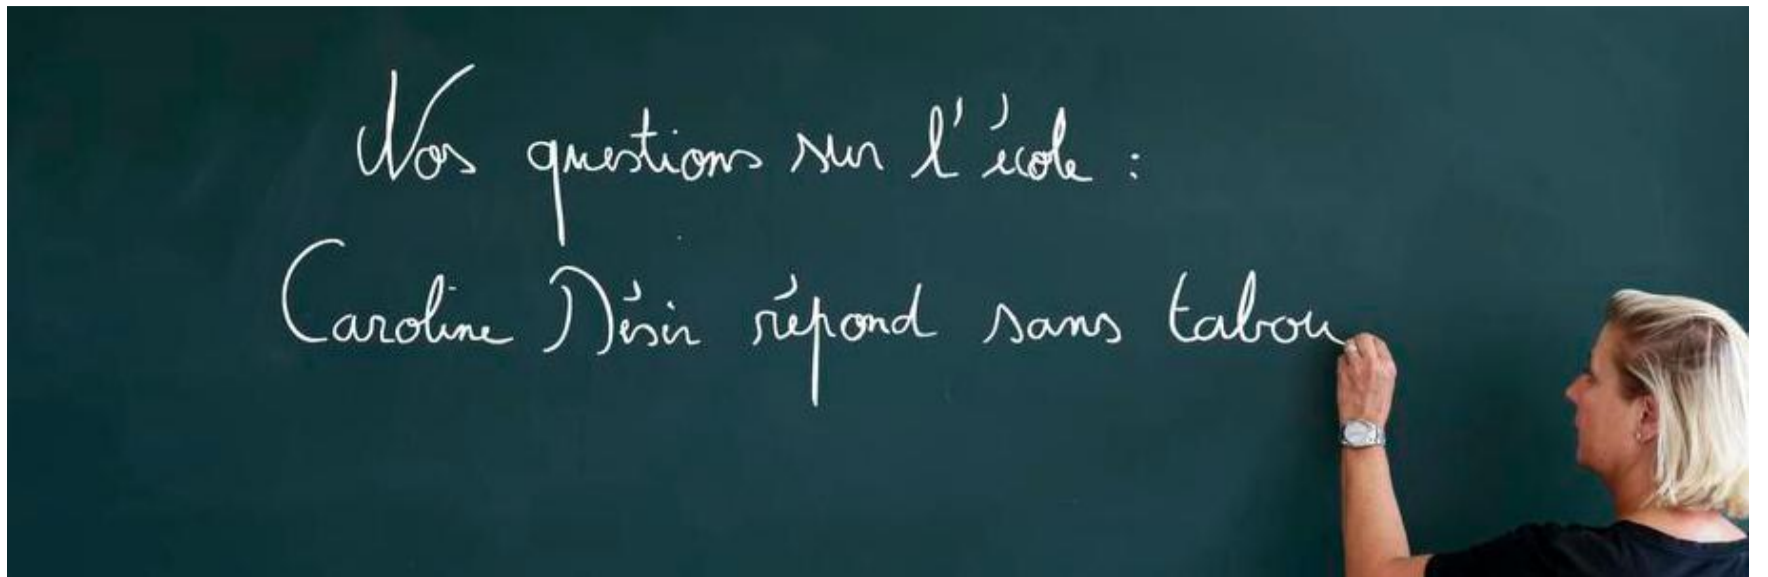 Nos questions sur l'école :
Caroline Désir répond sans tabou